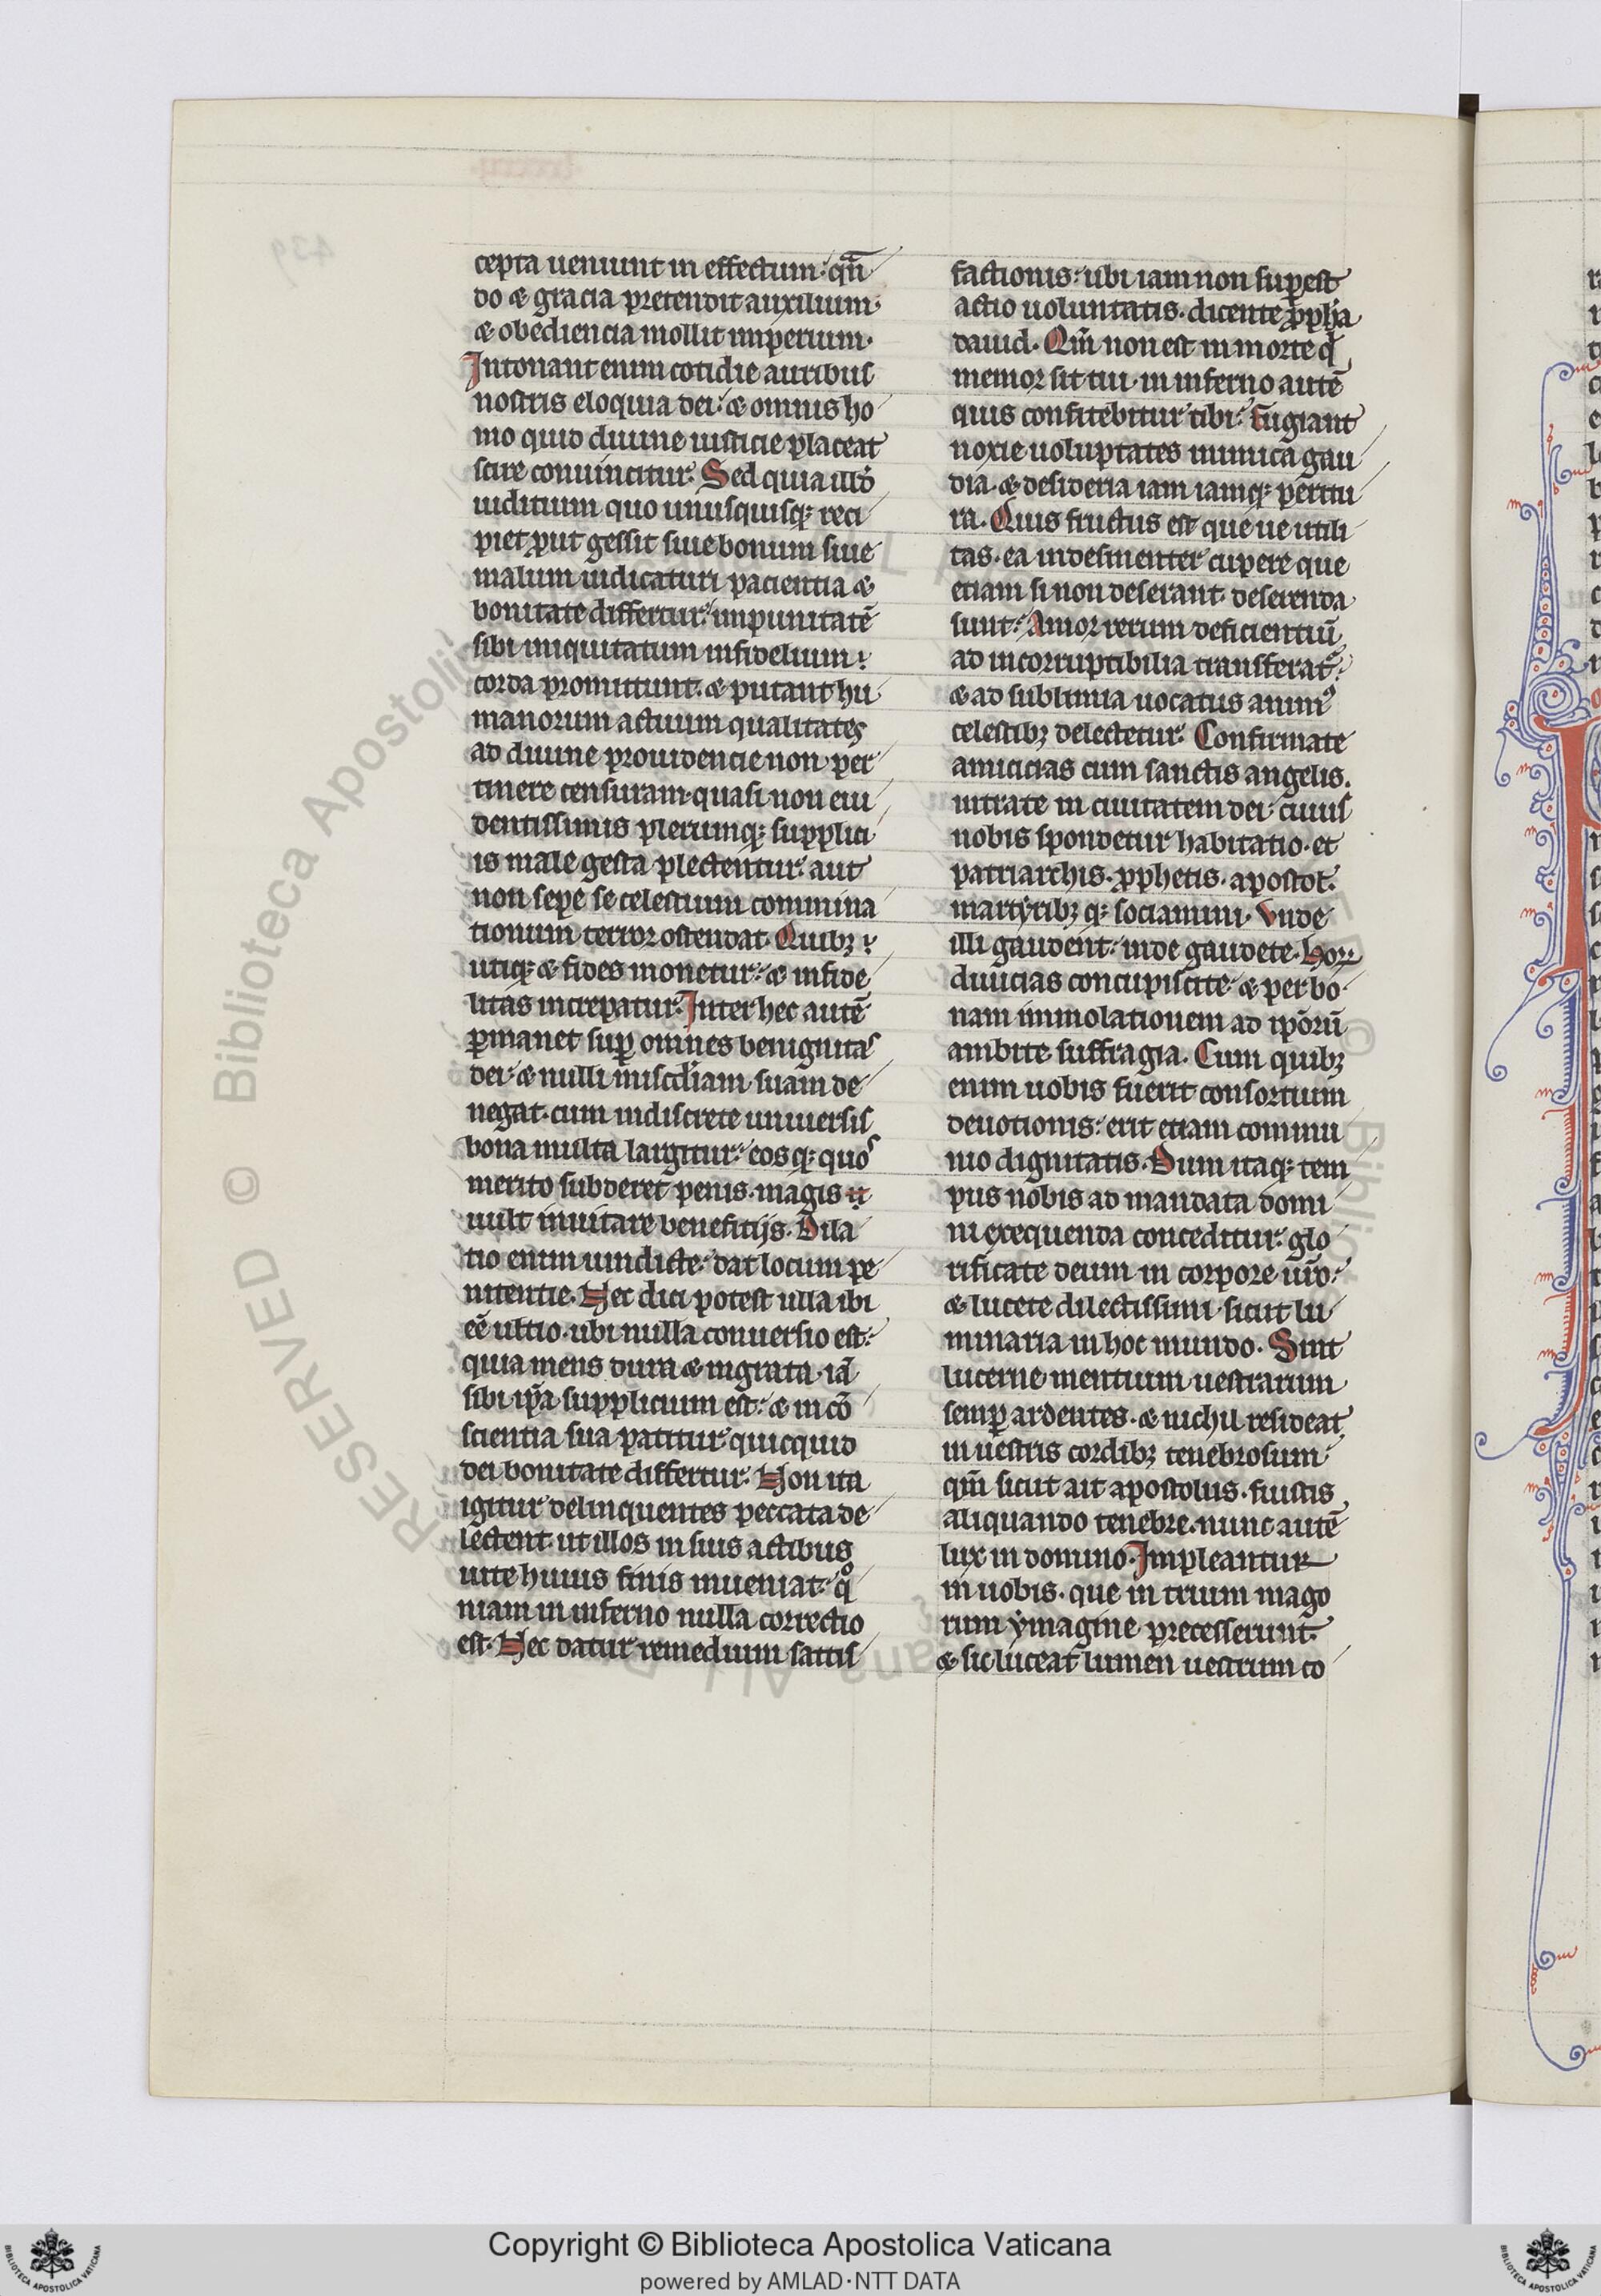 cepta ueniunt in effectum: qn̄
do & gracia pretendit auxilium.
& obediencia mollit imperium.
Intonant enim cotidie auribus
nostris eloquia dei: & omnis ho
mo quid diuine iusticie placeat
scire conuincitur. Sed quia illd̓
iuditium quo unusquisq; reci
piet ꝓut gessit siue bonum siue
malum iudicaturi pacientia &
bonitate differtur: impunitatē
sibi iniquitatum infidelium
corda promittunt. & putant hu
manorum actuum qualitates
ad diuine prouidencie non per
tinere censuram. quasi non eui
dentissimis plerumq; supplici
is male gesta plectentur: aut
non sepe se celestium commina
tionum terror ostendat. Quibz
utiq; & fides monetur: & infide
litas increpatur. Inter hec autē
ꝑmanet suꝑ omnes benignitas
dei: & nulli mīscd̓iam suam de
negat. cum indiscrete uniuersis
bona multa largitur: eosq; quos
merito subderet penis. magis
uult inuitare beneficijs. Dila
tio enim uindicte: dat locum pe
nitentie. Nec dici potest ulla ibi
eē ultio. ubi nulla conuersio est:
quia mens dura & ingrata. iā
sibi ip̄a supplicium est: & in cō
scientia sua patitur quicquid
dei bonitate differtur. Non ita
igitur delinquentes peccata de
lectent. ut illos in suis actibus
uite huius finis inueniat: qͦ
niam in inferno nulla correctio
est. Nec datur remedium satis
factionis: ubi iam non suꝑest
actio uoluntatis. dicente ꝓph̓a
dauid. Qm̄ non est in morte q̓
memor sit tui. in inferno autē
quis confitebitur tibi: Fugiant
noxie uoluptates inimica gau
dia. & desideria iam iamq; peritu
ra. Quis fructus est que ue utili
tas. ea indesinenter cupere que
etiam si non deserant deserenda
sunt: Amor rerum deficientiū
ad incorruptibilia transferat᷑:
& ad sublimia uocatus animꝰ
celestibz delectetur. Confirmate
amicicias cum sanctis angelis.
intrate in ciuitatem dei. cuius
nobis spondetur habitatio. et
patriarchis. ꝓphetis. apostol̓.
martyribz q; sociamini. Vnde
illi gaudent: inde gaudete. Hoꝝ
diuicias concupiscite: & per bo
nam immolationem ad ip̄orū
ambite suffragia. Cum quibz
enim uobis fuerit consortium
deuotionis: erit etiam commu
nio dignitatis. Dum itaq; tem
pus nobis ad mandata domi
ni exequenda conceditur: glo
rificate deum in corpore ur̄o:
& lucete dilectissimi sicut lu
minaria in hoc mundo. Sint
lucerne mentium uestrarum
semꝑ ardentes. & nichil resideat
in uestris cordibz tenebrosum:
qm̄ sicut ait apostolus. fuistis
aliquando tenebre. nunc autē
lux in domino. Impleantur
in uobis. que in trium mago
rum ymagine precesserunt.
& sic luceat lumen uestrum co
Copyright © Biblioteca Apostolica Vaticana
powered by AMLAD·NTT DATA